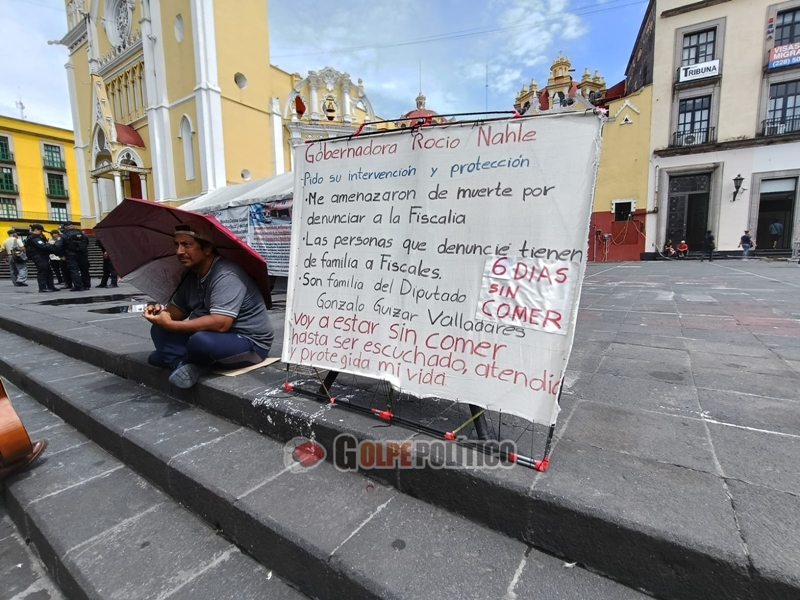 Gobernadora Rocio Nahle
• Pido su intervencion y protección
• Me amenazaron de muerte por
denunciar a la Fiscalia
• Las personas que denuncie tienen
de familia a Fiscales.
• Son familia del Diputado
Gonzalo Guizar Valladares
6 DIAS
SIN
COMER
Voy a estar sin comer
hasta ser escuchado, atendid
y protegida mi vida
TRIBUNA
VISAS
MIGRA
(228) 50
GOLPEPOLÍTICO